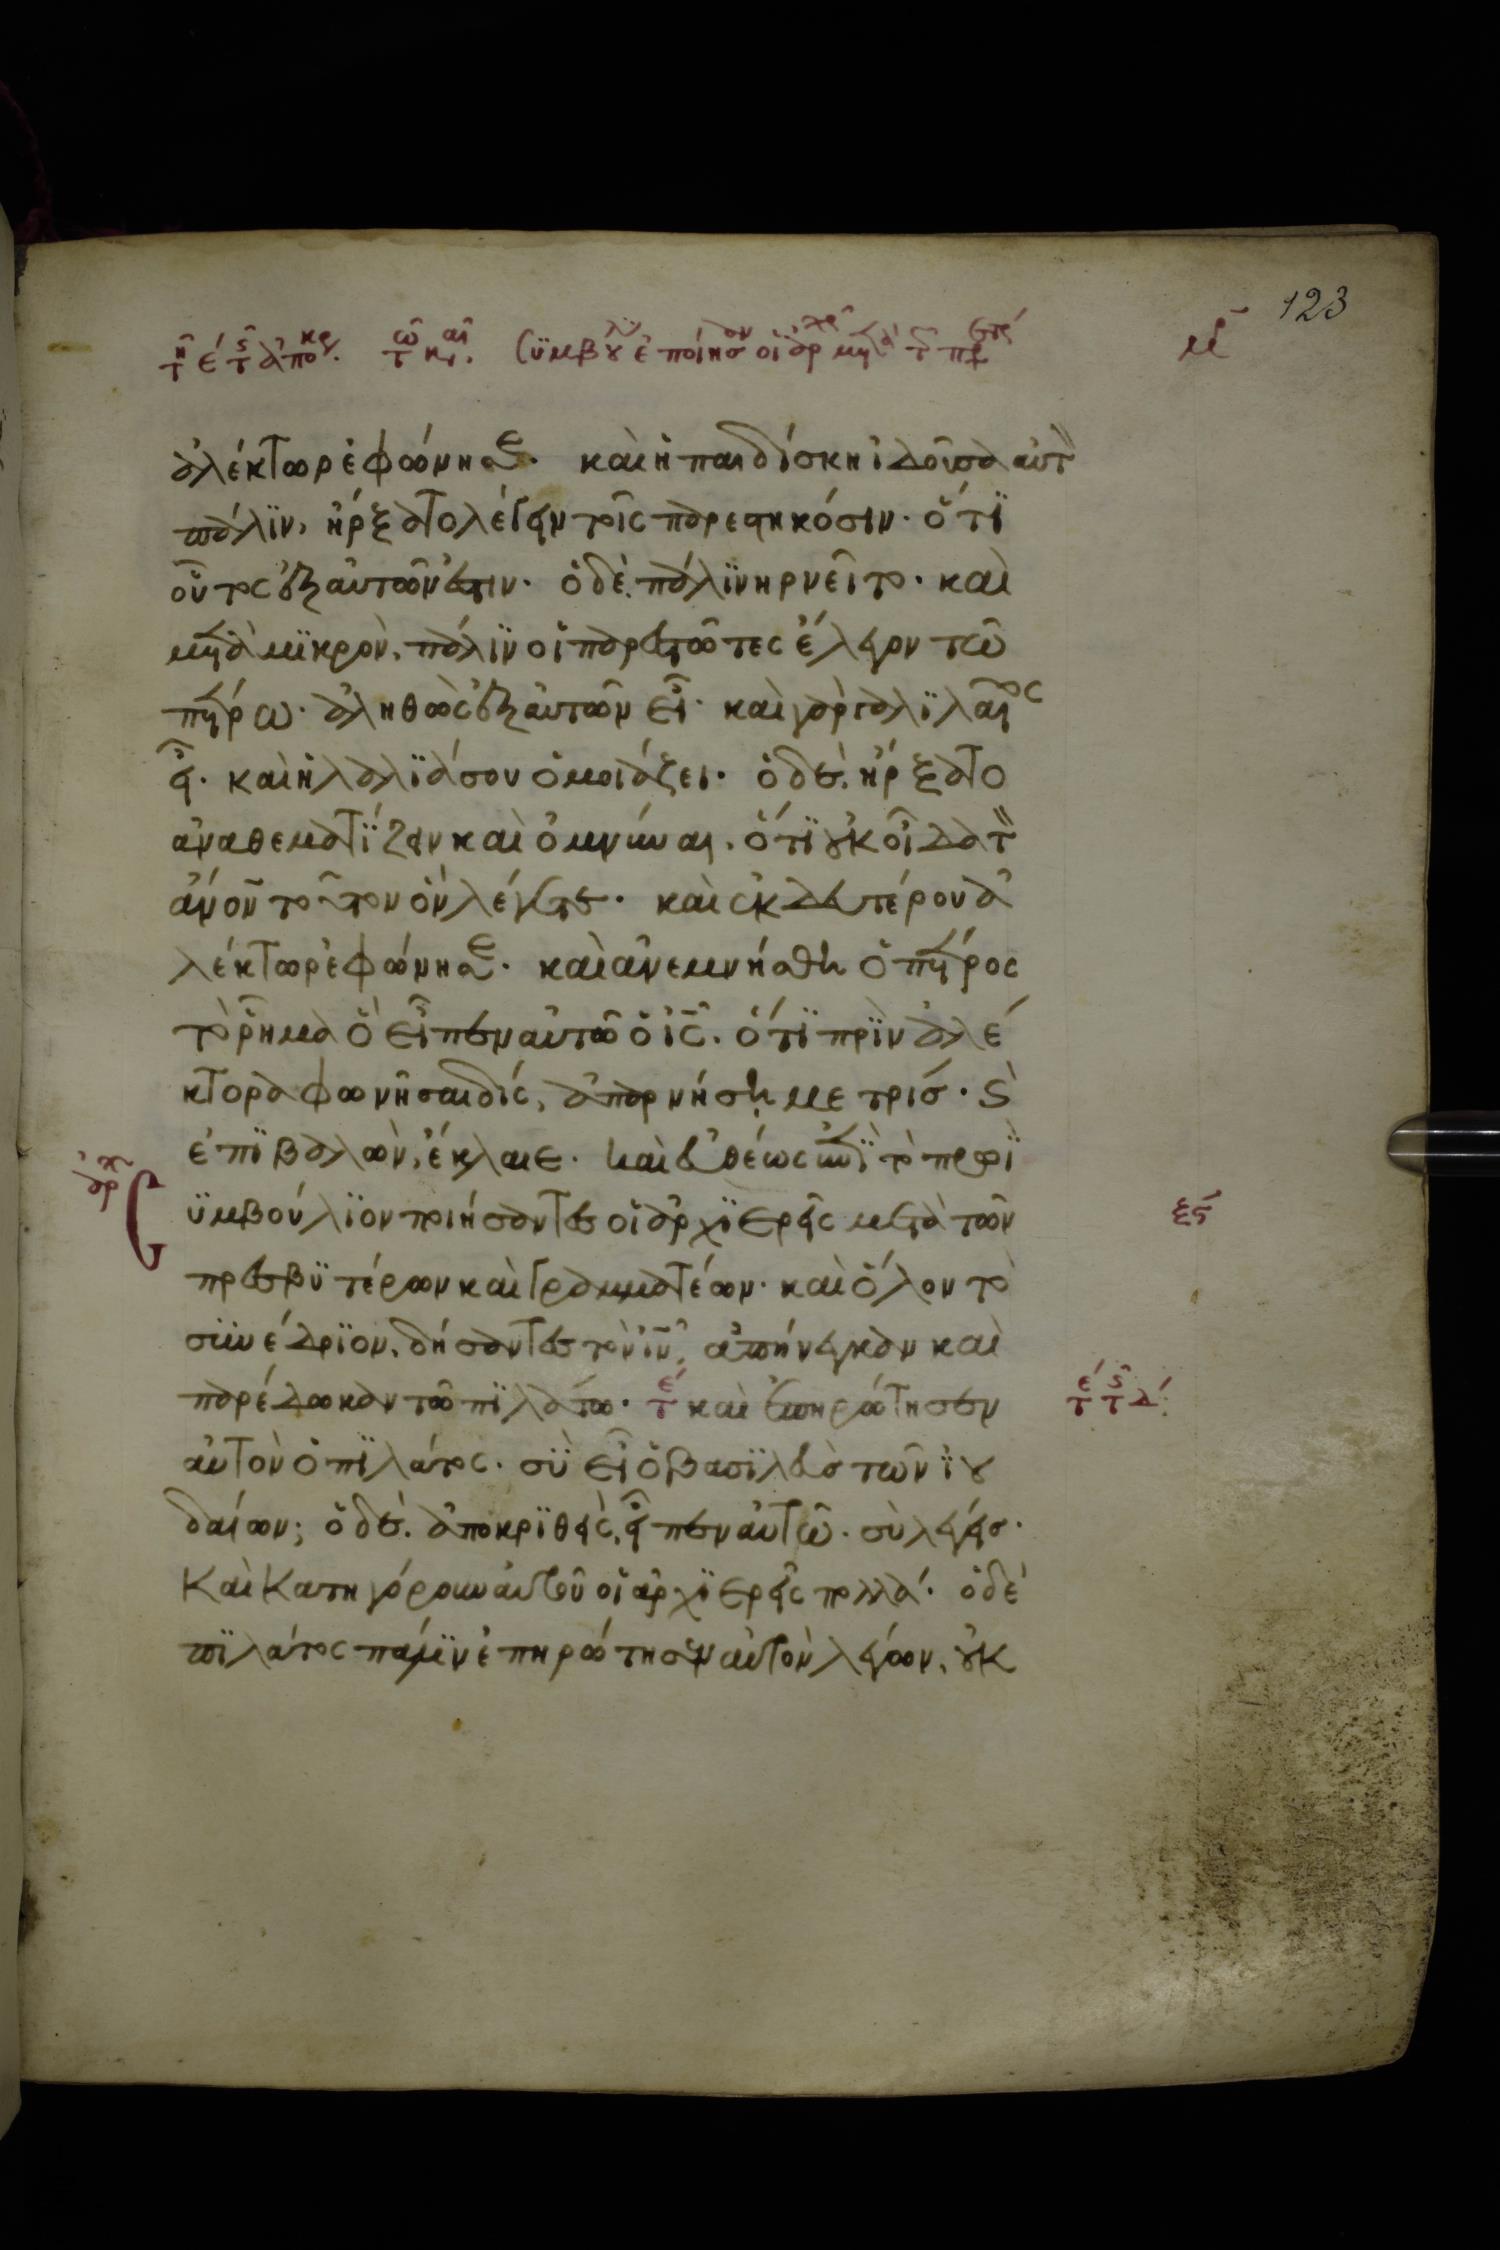 123
ἀλέκτωρ ἐφώνησε. καὶ ἡ παιδίσκη ἰδοῦσα αὐτ
πάλϊν, ἤρξατο λέγειν τοῖς παρεστηκόσιν. ὅτϊ
οὗτος ἐξ αὐτῶν ἐστιν. ὁ δὲ πάλϊν ηρνεῖτο. καὶ
μετὰ μϊκρὸν, πάλϊν οἱ παρεστῶτες ἔλεγον τῶ
πέτρω. ἀληθῶς ἐξ αὐτῶν εἶ. καὶ γὰρ γαλϊλαῖος
εἶ. καὶ ἡ λαλϊά σου ὁμοιάζει. ὁ δὲ ἤρξατο
ἀναθεματΐζειν καὶ ὀμνύναι. ὅτϊ οὐκ οἶδα τ
ἄνον τοῦτον ὃν λέγετε. καὶ ἐκ δευτέρου ἀ
λέκτωρ ἐφώνησε. καὶ ἀνεμνήσθη ὁ πέτρος
τὸ ῥῆμα ὃ εἶπεν αὐτῶ ὁ ἰς. ὅτϊ πρϊν ἀλέ
κτορα φωνῆσαι δίς, ἀπαρνήση με τρίσ. καὶ
ἐπϊβαλὼν, ἔκλαιε. καὶ εὐθέως ἐπῒ τὸ πρωῒ
ϋμβούλϊον ποιήσαντες οἱ ἀρχϊερεῖς μετὰ τῶν
πρεσβϋτέρων καὶ γραμματέων. καὶ ὅλον τὸ
συνέδρϊον, δήσαντες τὸν ἰν, ἀπήνεγκαν καὶ
παρέδωκαν τῶ πϊλάτω. καὶ ἐπηρώτησεν
αὐτὸν ὁ πϊλάτος. σϋ εἶ ὁ βασϊλεὺσ τῶν ϊου
δαίων; ὁ δὲ ἀποκρϊθεὶς, εἶπεν αὐτῶ. σὺ λέγεισ.
καὶ κατηγόρουν αὐτοῦ οἱ ἀρχϊερεῖς πολλά. ὁ δὲ
πϊλάτος πάλϊν ἐπηρώτησεν αὐτὸν λέγων, οὐκ
ξϛ